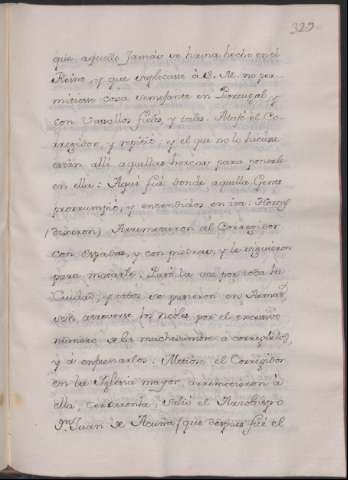 325
que aquello Jamás se havia hecho en el
Reino, y que suplicasse á S. M. no per-
mitiesse cosa semejante en Portugal y
con Vasallos fieles, y tales. Rióse el Co-
rregidor, y repitió, y el que no lo hiciese
verán allí aquellas horcas para ponerle
en ellas: Aquí fué donde aquella Gente
prorrumpió, y encendidos en ira: Horcas
(dixeron) Arremetieron al Corregidor
con espadas, y con piedras, y le siguieron
para matarle. Pasó la voz por toda la
Ciudad, y todos se pusieron en Armas,
sin atreverse los nobles por el excesivo
numero de la muchedumbre á corregirlos,
y á enfrenarlos. Metiose el Corregidor
en la Iglesia mayor, arremetieron á
ella, cercaronla, salió el Arzobispo
Dn. Juan de Acuña (que despues fué el